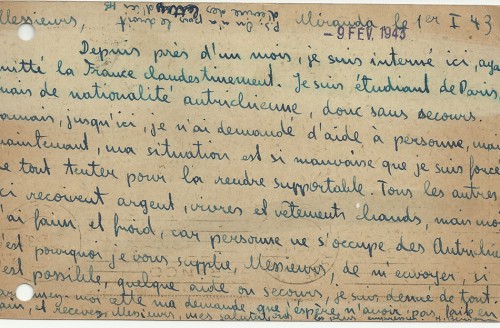 Messieurs,
P.S. On n'a pas le droit
d'écrire des
Miranda le 1er I 43
- 9 FEV. 1943
Depuis près d'un mois, je suis interné ici, aya
uitté la France clandestinement. Je suis étudiant de Paris,
mais de nationalité autrichienne, donc sans secours.
amais, jusqu'ici, je n'ai demandé d'aide à personne, mais
maintenant, ma situation est si mauvaise que je suis forcé
de tout tenter pour la rendre supportable. Tous les autres
ici recoivent argent, vivres et vêtements chauds, mais moi
j'ai faim et froid, car personne ne s'occupe des Autrichie
C'est pourquoi je vous supplie, Messieurs, de m'envoyer, si
c'est possible, quelque aide ou secours, je suis dénué de tout.
moi cette ma demande que j'espère n'avoir pas faite en
ain, et recevez, Messieurs, mes salutations les plus